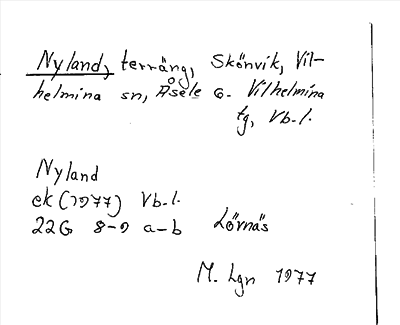 Nyland, terräng, Skönvik, Vil-
helmina sn, Åsele o. Vilhelmina
tg, Vb.l.
Nyland
ek (1977) Vb.l.
22G 8-9 a-b Lörnäs
M. Lgn 1977